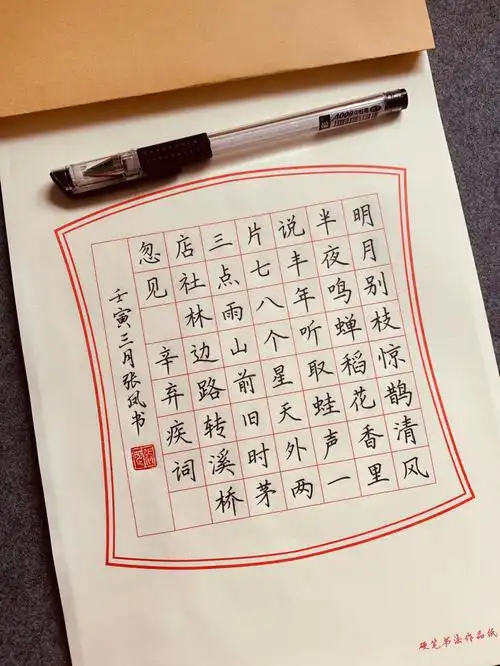 明月别枝惊鹊清风
半夜鸣蝉稻花香里
说丰年听取蛙声一
片七八个星天外两
三点雨山前旧时茅
店社林边路转溪桥
忽见 辛弃疾词
壬寅三月张凤书
硬笔书法作品纸
A008